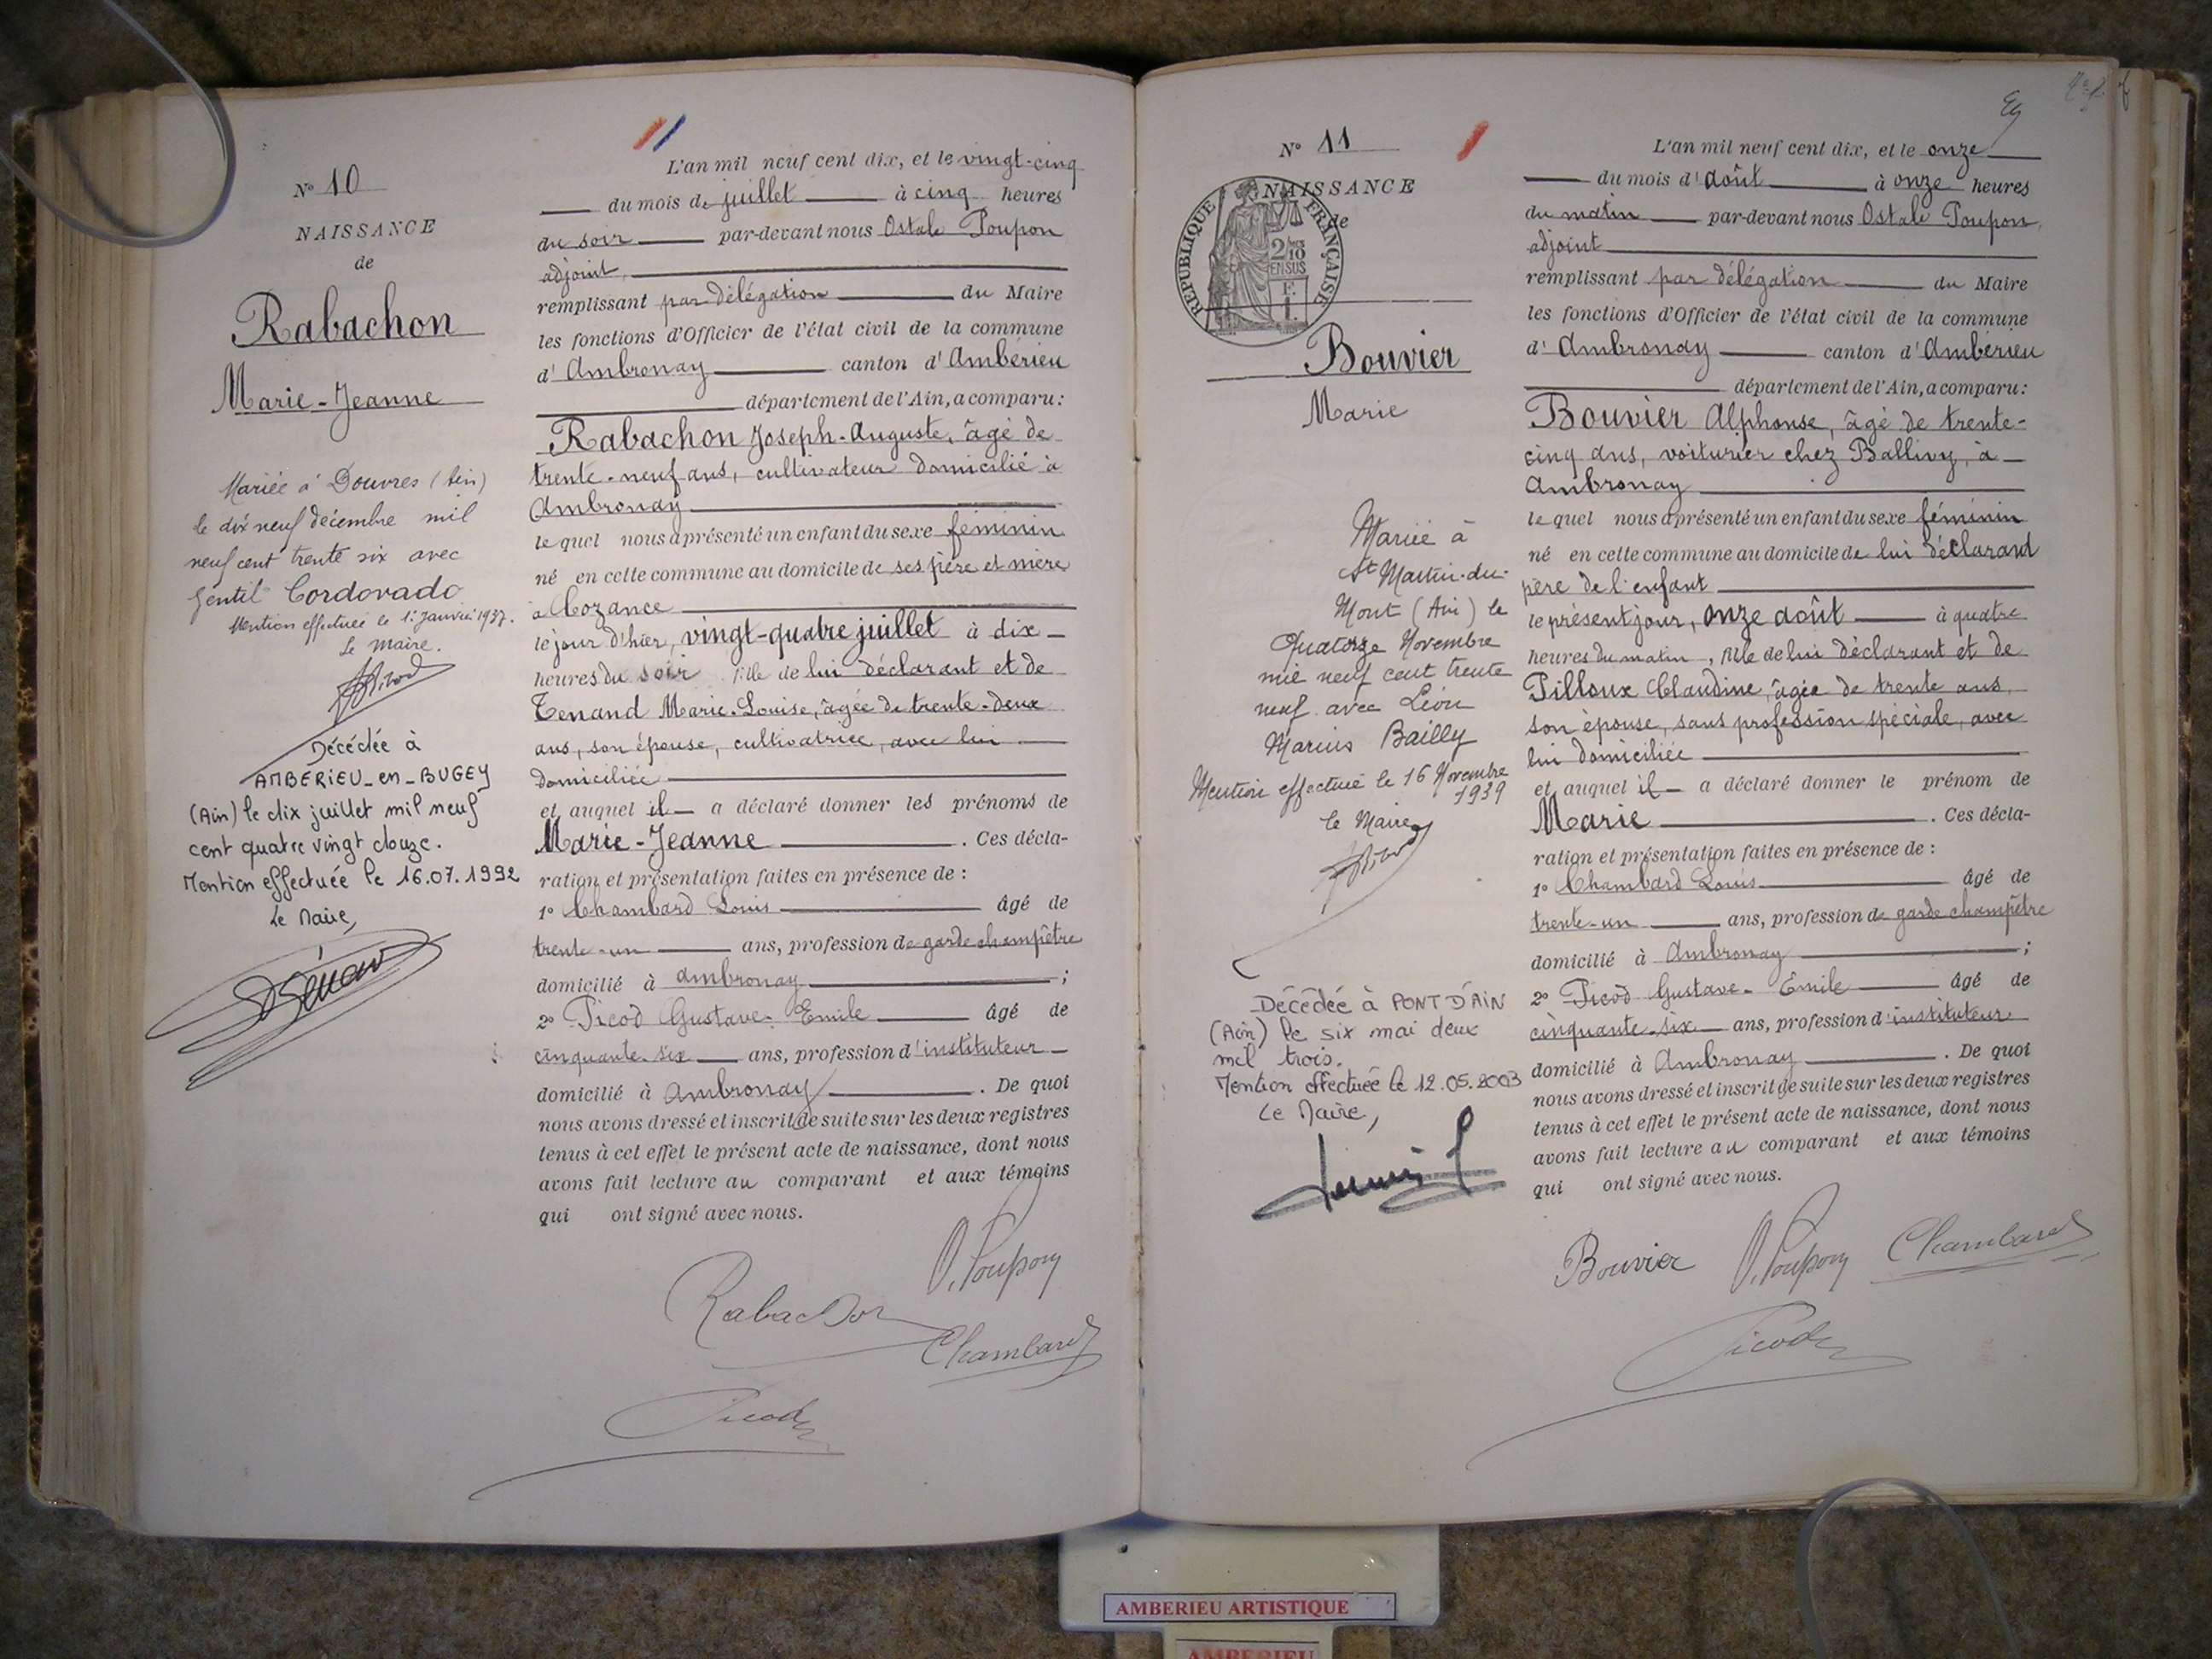 N° 10
NAISSANCE
de
Rabachon
Marie-Jeanne
Mariée à Douvres (Ain)
le dix neuf décembre mil
neuf cent trente six avec
Gentil Cordovado
Mention effectuée le 1er Janvier 1937.
Le Maire.
Décédée à
AMBERIEU-en-BUGEY
(Ain) le dix juillet mil neuf
cent quatre vingt douze.
Mention effectuée le 16.07.1992
Le Maire,
L'an mil neuf cent dix, et le vingt-cinq
du mois de juillet à cinq heures
du soir par-devant nous Ostale Poupon
adjoint,
remplissant par délégation du Maire
les fonctions d'Officier de l'état civil de la commune
d'Ambronay canton d'Ambérieu
département de l'Ain, a comparu:
Rabachon Joseph-Auguste, âgé de
trente-neuf ans, cultivateur domicilié à
Ambronay
lequel nous a présenté un enfant du sexe féminin
né en cette commune au domicile de ses père et mère
à Cozance
le jour d'hier, vingt-quatre juillet à dix
heures du soir fille de lui déclarant et de
Tenand Marie-Louise, âgée de trente-deux
ans, son épouse, cultivatrice, avec lui
domiciliée
et auquel il a déclaré donner les prénoms de
Marie-Jeanne. Ces décla-
ration et présentation faites en présence de :
1° Chambard Louis âgé de
trente-un ans, profession de garde champêtre
domicilié à Ambronay ;
2° Picod Gustave-Emile âgé de
cinquante-six ans, profession d'instituteur
domicilié à Ambronay. De quoi
nous avons dressé et inscrit de suite sur les deux registres
tenus à cet effet le présent acte de naissance, dont nous
avons fait lecture au comparant et aux témoins
qui ont signé avec nous.
O. Poupon
Rabachon
Chambard
Picod
N° 11
NAISSANCE
de
REPUBLIQUE FRANÇAISE
2/10
EN SUS
Bouvier
Marie
Mariée à
St Martin-du-
Mont (Ain) le
Quatorze Novembre
mil neuf cent trente
neuf avec Léon
Marius Bailly
Mention effectuée le 16 Novembre
1939
Le Maire
Décédée à PONT D'AIN
(Ain) le six mai deux
mil trois.
Mention effectuée le 12.05.2003
Le Maire,
L'an mil neuf cent dix, et le onze
du mois d'août à onze heures
du matin par-devant nous Ostale Poupon,
adjoint
remplissant par délégation du Maire
les fonctions d'Officier de l'état civil de la commune
d'Ambronay canton d'Ambérieu
département de l'Ain, a comparu:
Bouvier Alphonse, âgé de trente-
cinq ans, voiturier chez Ballivy, à
Ambronay
lequel nous a présenté un enfant du sexe féminin
né en cette commune au domicile de lui déclarand
père de l'enfant
le présent jour, onze août à quatre
heures du matin, fille de lui déclarant et de
Pilloux Claudine, âgée de trente ans,
son épouse, sans profession spéciale, avec
lui domiciliée
et auquel il a déclaré donner le prénom de
Marie. Ces décla-
ration et présentation faites en présence de :
1° Chambard Louis âgé de
trente-un ans, profession de garde champêtre
domicilié à Ambronay ;
2° Picod Gustave-Emile âgé de
cinquante-six ans, profession d'instituteur
domicilié à Ambronay. De quoi
nous avons dressé et inscrit de suite sur les deux registres
tenus à cet effet le présent acte de naissance, dont nous
avons fait lecture au comparant et aux témoins
qui ont signé avec nous.
Bouvier O. Poupon Chambard
Picod
AMBERIEU ARTISTIQUE
AMBERIEU